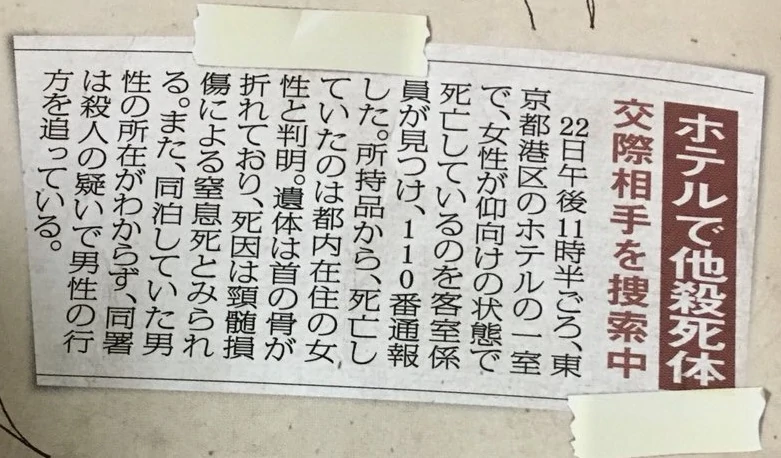 ホテルで他殺死体
交際相手を捜索中
22日午後11時半ごろ、東
京都港区のホテルの一室
で、女性が仰向けの状態で
死亡しているのを客室係
員が見つけ、110番通報
した。所持品から、死亡し
ていたのは都内在住の女
性と判明。遺体は首の骨が
折れており、死因は頸髄損
傷による窒息死とみられ
る。また、同泊していた男
性の所在がわからず、同署
は殺人の疑いで男性の行
方を追っている。